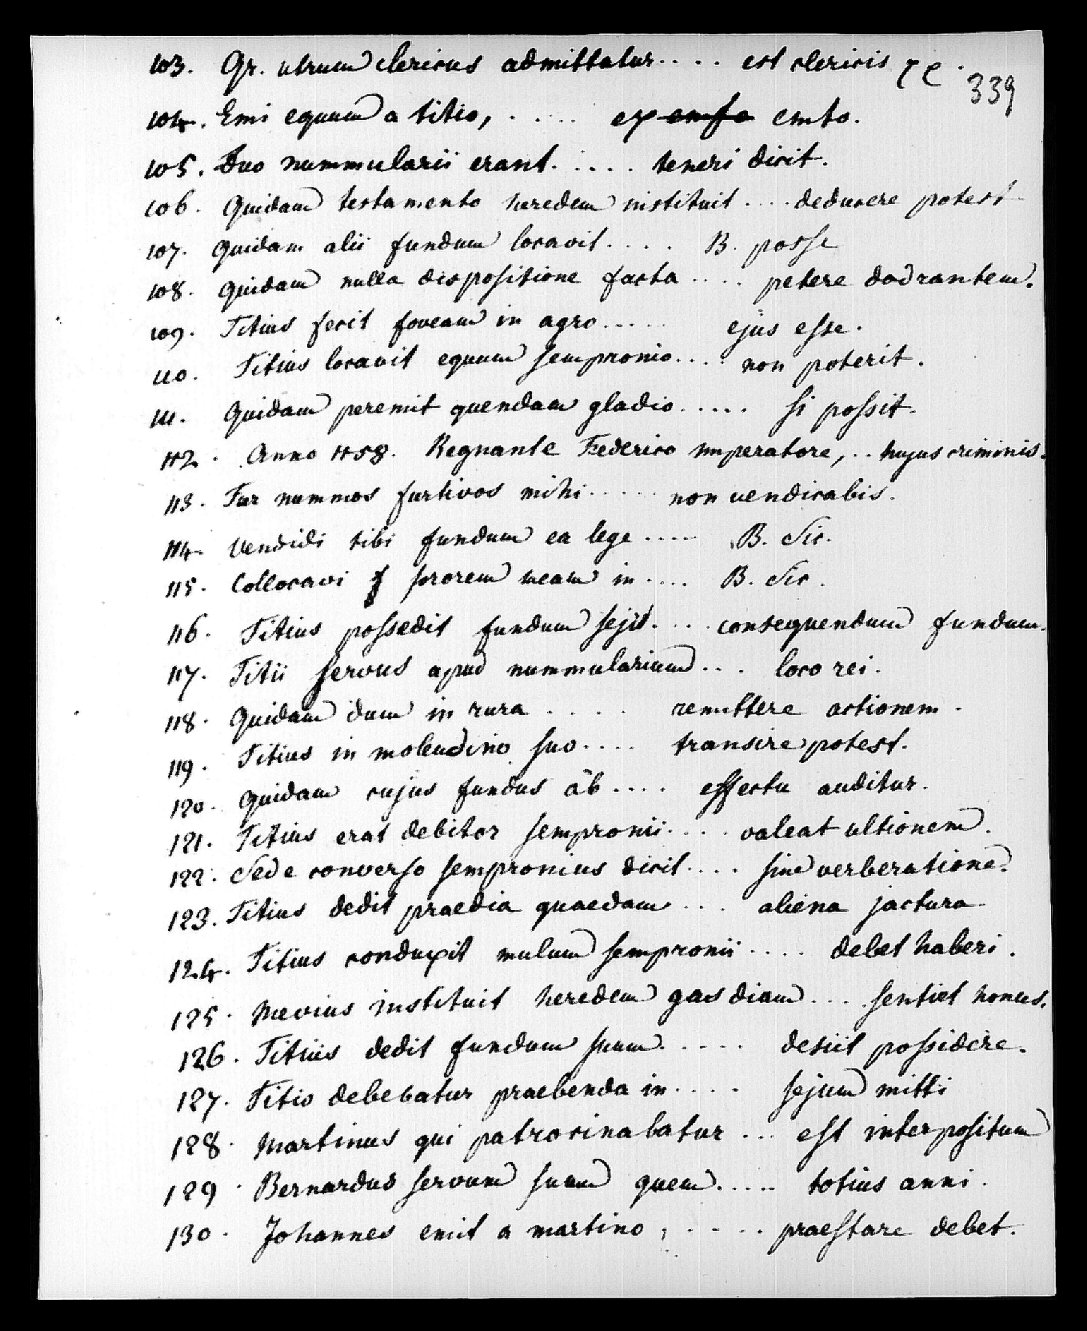 103. Qr. utrum clericus admittatur.... est clericis
339
104. Emi equum a titio, ..... ex empto emto.
105. Duo nummularii erant..... teneri dicit.
106. Quidam testamento heredem instituit .... deducere potest
107. Quidam alii fundum locavit.... B. posse
108. Quidam nulla dispositione facta .... petere dodrantem.
109. Titius fecit foveam in agro..... ejus esse.
110. Titius locavit equum sempronio... non poterit.
111. Quidam peremit quendam gladio..... si possit.
112. Anno 1158. Regnante Federico imperatore,.. hujus criminis.
113. Fur nummos furtivos mihi..... non vendicabis.
114. Vendidi tibi fundum ea lege..... B. Sic.
115. Collocavi sororem meam in.... B. Sic.
116. Titius possedit fundum seji.... consequendum fundum.
117. Titii servus apud nummularium... loco rei.
118. Quidam dum in rura ..... remittere actionem.
119. Titius in molendino suo.... transire potest.
120. Quidam cujus fundus ab.... effectu auditur.
121. Titius erat debitor sempronii.... valeat ultionem.
122. Sed e converso sempronius dicit.... sine verberatione.
123. Titius dedit praedia quaedam ... aliena jactura.
124. Titius conduxit mulum sempronii .... debet haberi.
125. Maevius instituit heredem gasdiam ... sentiet honus.
126. Titius dedit fundum suum..... desiit possidere.
127. Titio debebatur praebenda in.... sejum mitti
128. Martinus qui patrocinabatur ... est interpositum
129. Bernardus servum suum quem..... totius anni.
130. Johannes emit a martino, ..... praestare debet.